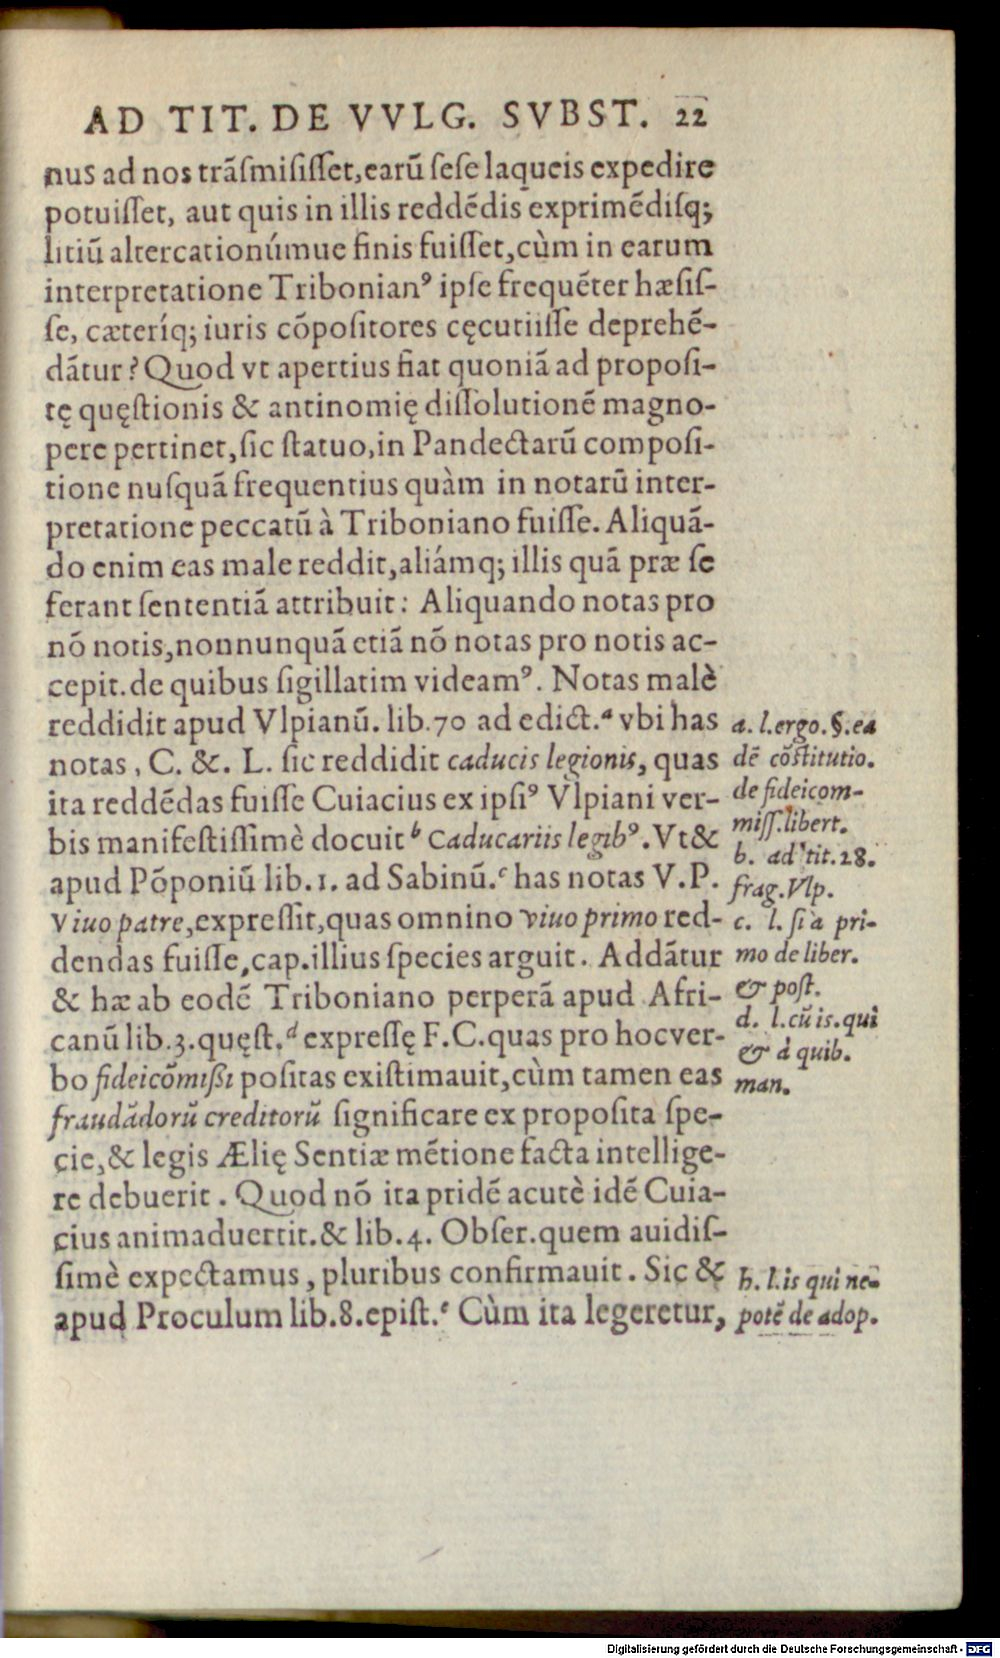 AD TIT. DE VVLG. SVBST. 22
nus ad nos trãſmiſiſſet, earũ ſeſe laqueis expedire
potuiſſet, aut quis in illis reddẽdis exprimẽdiſq;
litiũ altercationúmue finis fuiſſet, cùm in earum
interpretatione Tribonianꝰ ipſe frequẽter hæſiſ-
ſe, cæteríq; iuris cõpoſitores cęcutiiſſe deprehẽ-
dãtur? Quod vt apertius fiat quoniã ad propoſi-
tę quęſtionis & antinomię diſſolutionẽ magno-
pere pertinet, ſic ſtatuo, in Pandectarũ compoſi-
tione nuſquã frequentius quàm in notarũ inter-
pretatione peccatũ à Triboniano fuiſſe. Aliquã-
do enim eas male reddit, aliámq; illis quã præ ſe
ferant ſententiã attribuit: Aliquando notas pro
nõ notis, nonnunquã etiã nõ notas pro notis ac-
cepit. de quibus ſigillatim videamꝰ. Notas malè
reddidit apud Vlpianũ. lib. 70 ad edict.ᵃ vbi has
notas, C. &. L. ſic reddidit caducis legionis, quas
ita reddẽdas fuiſſe Cuiacius ex ipſiꝰ Vlpiani ver-
bis manifeſtiſſimè docuit ᵇ Caducariis legibꝰ. Vt &
apud Põponiũ lib. 1. ad Sabinũ.ᶜ has notas V. P.
Viuo patre, expreſſit, quas omnino viuo primo red-
dendas fuiſſe, cap. illius ſpecies arguit. Addãtur
& hæ ab eodẽ Triboniano perperã apud Afri-
canũ lib. 3. quęſt.ᵈ expreſſę F. C. quas pro hoc ver-
bo fideicõmißi poſitas exiſtimauit, cùm tamen eas
fraudãdorũ creditorũ ſignificare ex propoſita ſpe-
cie, & legis Ælię Sentiæ mẽtione facta intellige-
re debuerit. Quod nõ ita pridẽ acutè idẽ Cuia-
cius animaduertit. & lib. 4. Obſer. quem auidiſ-
ſimè expectamus, pluribus confirmauit. Sic &
apud Proculum lib. 8. epiſt.ᵉ Cùm ita legeretur,
a. l. ergo. §. ea
dẽ cõſtitutio.
de fideicom-
miſſ. libert.
b. ad tit. 28.
frag. Vlp.
c. l. ſi a pri-
mo de liber.
& poſt.
d. l. cũ is. qui
& à quib.
man.
h. l. is qui ne-
potẽ de adop.
Digitalisierung gefördert durch die Deutsche Forschungsgemeinschaft - DFG